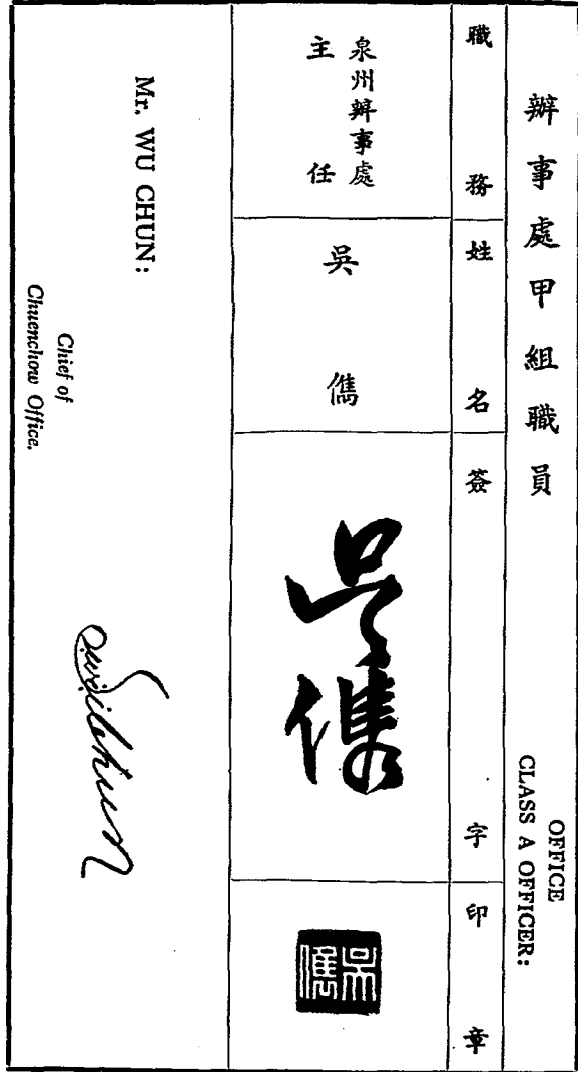 辦事處甲組職員
OFFICE
CLASS A OFFICER:
職務
姓名
簽字
印章
泉州辦事處
主任
吳儁
吳儁
吳儁
Mr. WU CHUN:
Chief of
Chuenchow Office.